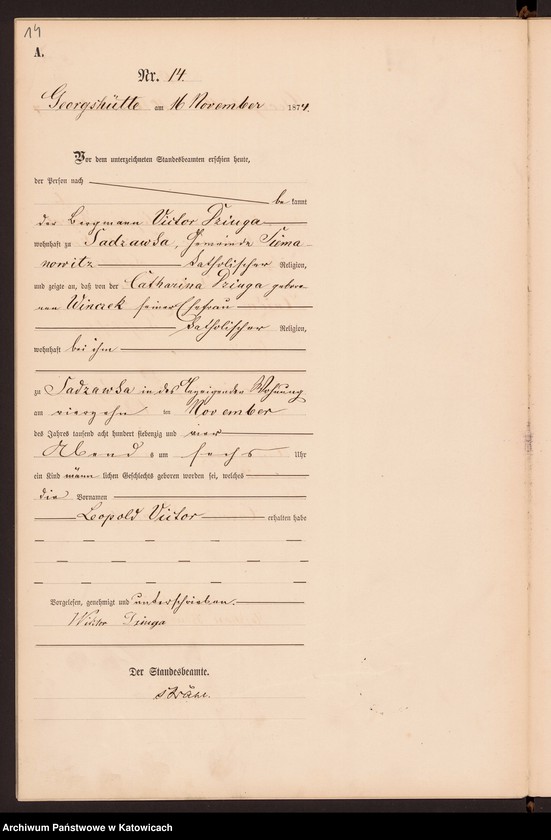 14
A.
Nr. 14.
Georgshütte am 16 November 1874.
Vor dem unterzeichneten Standesbeamten erschien heute,
der Person nach
be kannt
der Bergmann Victor Dziuga
wohnhaft zu Sadzawka, Gemeinde Siema-
nowitz katholischer Religion,
und zeigte an, daß von der Catharina Dziuga gebore-
nen Winczek seiner Ehefrau
katholischer Religion,
wohnhaft bei ihm
zu Sadzawka in des Anzeigenden Wohnung
am vierzehn ten November
des Jahres tausend acht hundert siebenzig und vier
Abend s um sechs Uhr
ein Kind männ lichen Geschlechts geboren worden sei, welches
die Vornamen
Leopold Victor erhalten habe
Vorgelesen, genehmigt und unterschrieben.
Wiktor Dziuga
Der Standesbeamte.
Archiwum Państwowe w Katowicach